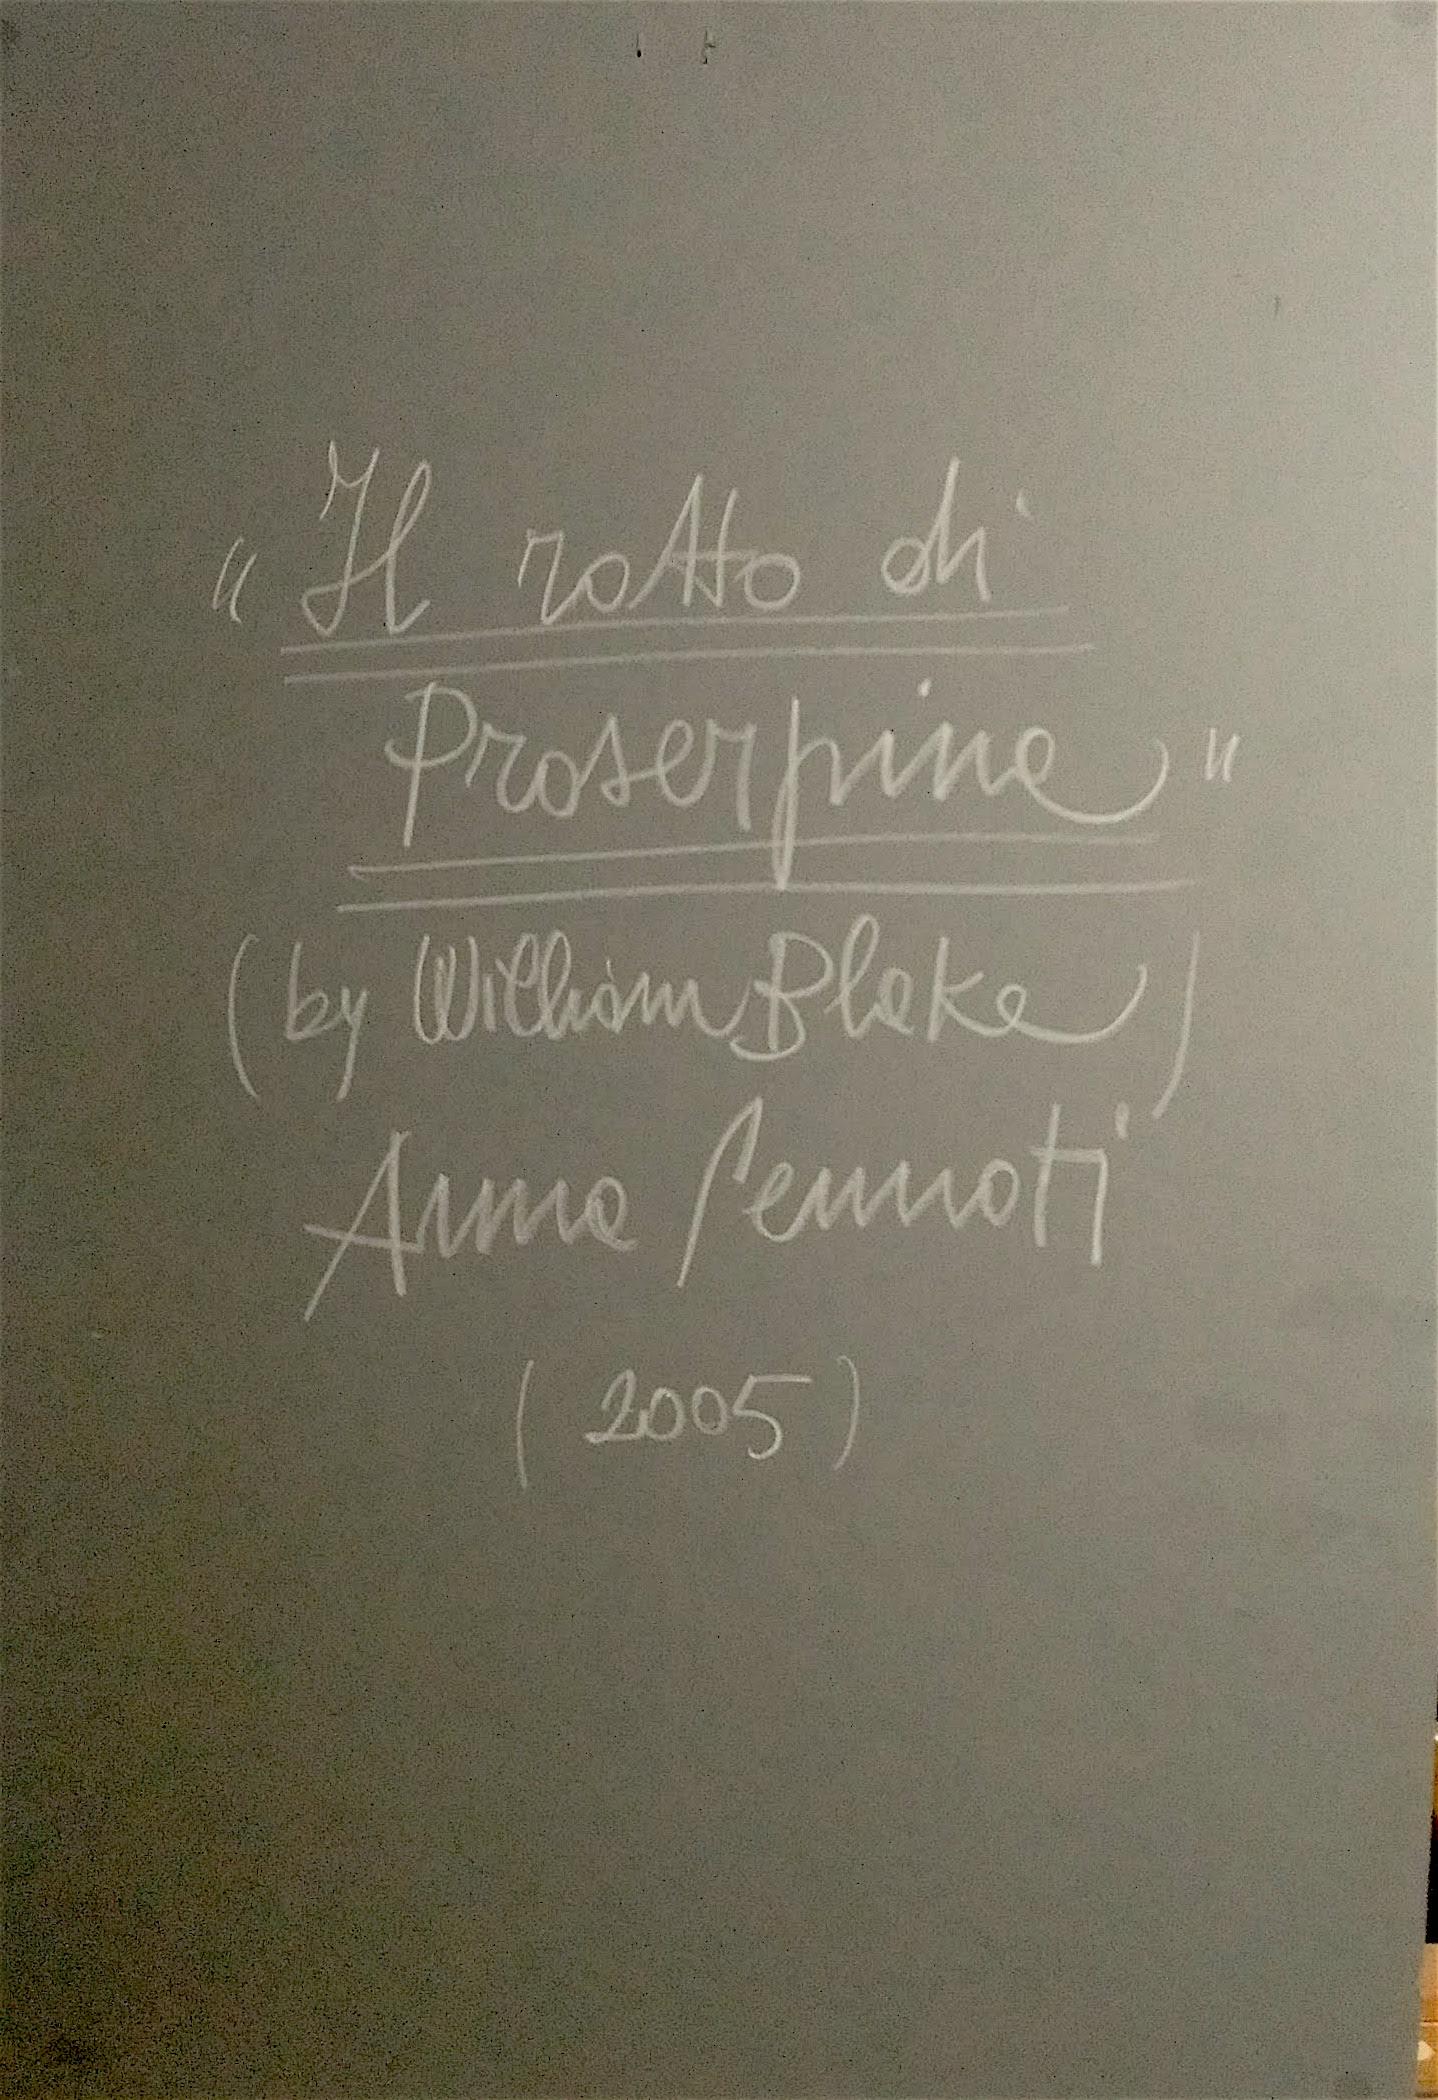 "Il ratto di
Proserpina"
(by William Blake)
Anna Pennati
(2005)